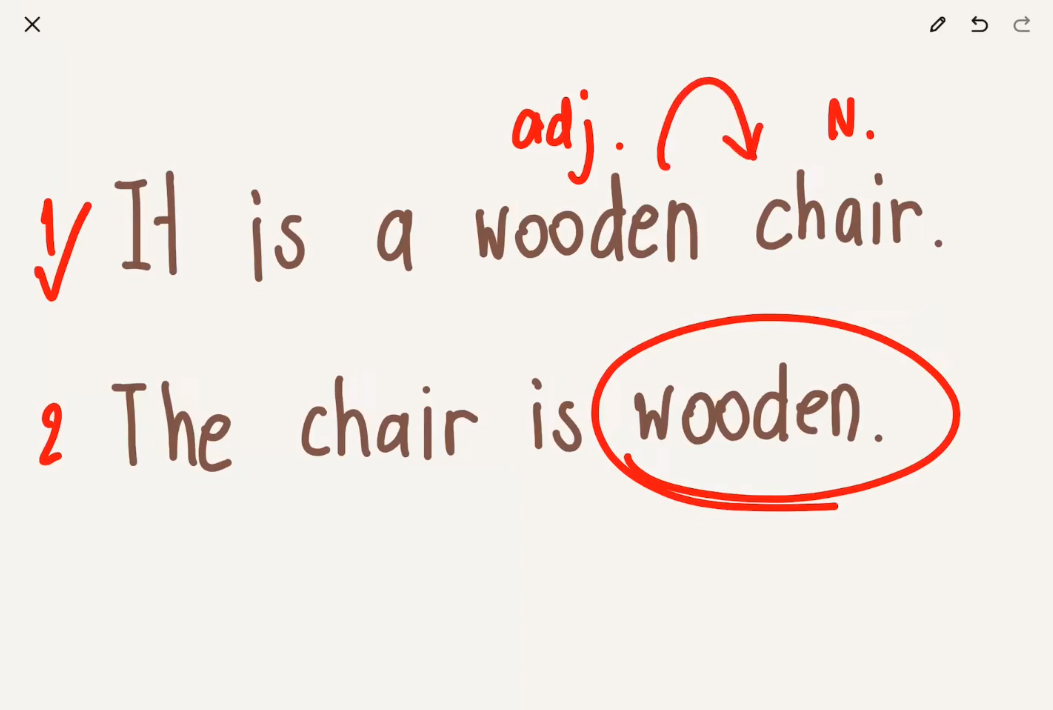 adj. N.
1 It is a wooden chair.
2 The chair is wooden.